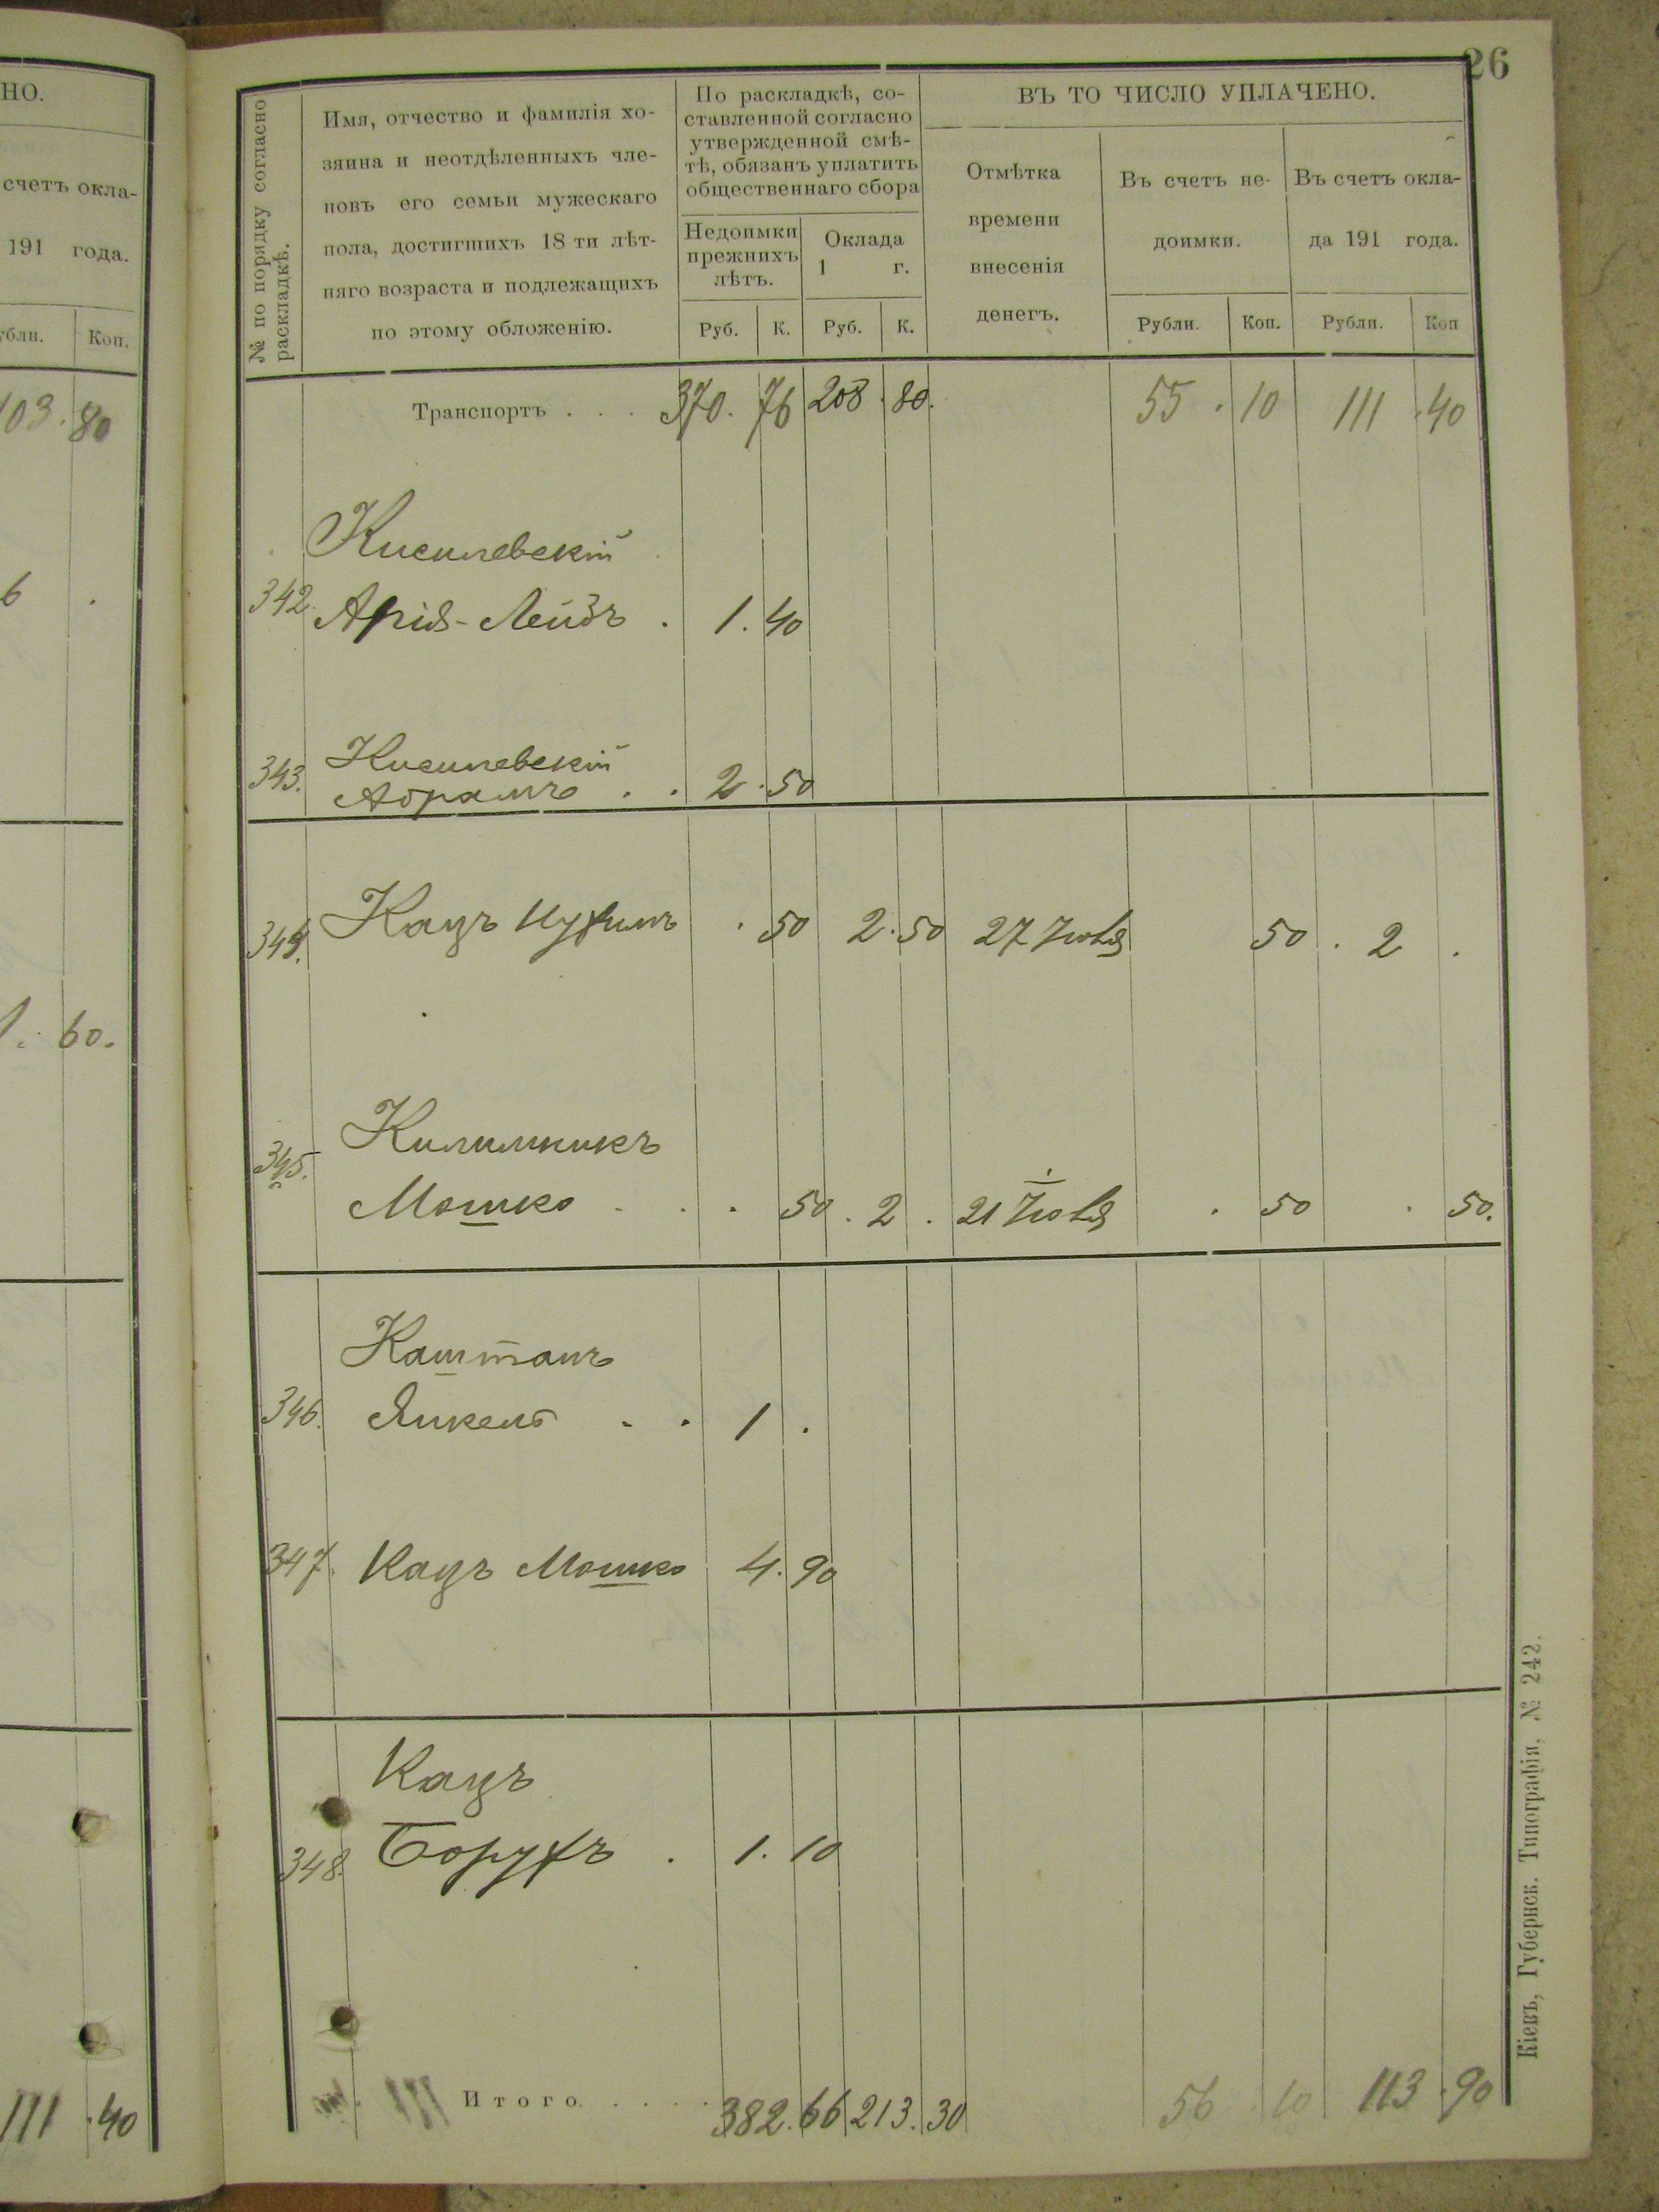 НО.
счетъ окла-
191 года.
Коп.
103. 80
6 .
1. 60.
111 . 40
26
№ по порядку согласно
раскладкѣ.
Имя, отчество и фамилія хо-
зяина и неотдѣленныхъ чле-
новъ его семьи мужескаго
пола, достигшихъ 18 ти лѣт-
няго возраста и подлежащихъ
по этому обложенію.
По раскладкѣ, со-
ставленной согласно
утвержденной смѣ-
тѣ, обязанъ уплатить
общественнаго сбора
Недоимки
прежнихъ
лѣтъ.
Оклада
1 г.
Руб. К. Руб. К.
ВЪ ТО ЧИСЛО УПЛАЧЕНО.
Отмѣтка
времени
внесенія
денегъ.
Въ счетъ не-
доимки.
Рубли. Коп.
Въ счетъ окла-
да 191 года.
Рубли. Коп
Транспортъ . . . 370. 76 208 . 80. 55 . 10 111 . 40
Кисилевскій
342. Арія-Лейзъ . 1. 40
Кисилевскій
343. Абрамъ . . 2. 50
344. Кацъ Нухимъ . 50 2. 50 27 Іюля 50 . 2 .
Килимникъ
345. Мошко . . . 50 . 2 . 21 Іюля . 50 . 50.
Каштанъ
346. Янкель . . 1 .
347. Кацъ Мошко 4. 90
Кацъ
348. Борухъ . 1. 10
Итого . . . . . 382. 66 213. 30 56 . 10 113 . 90
Кіевъ, Губернск. Типографія, № 242.